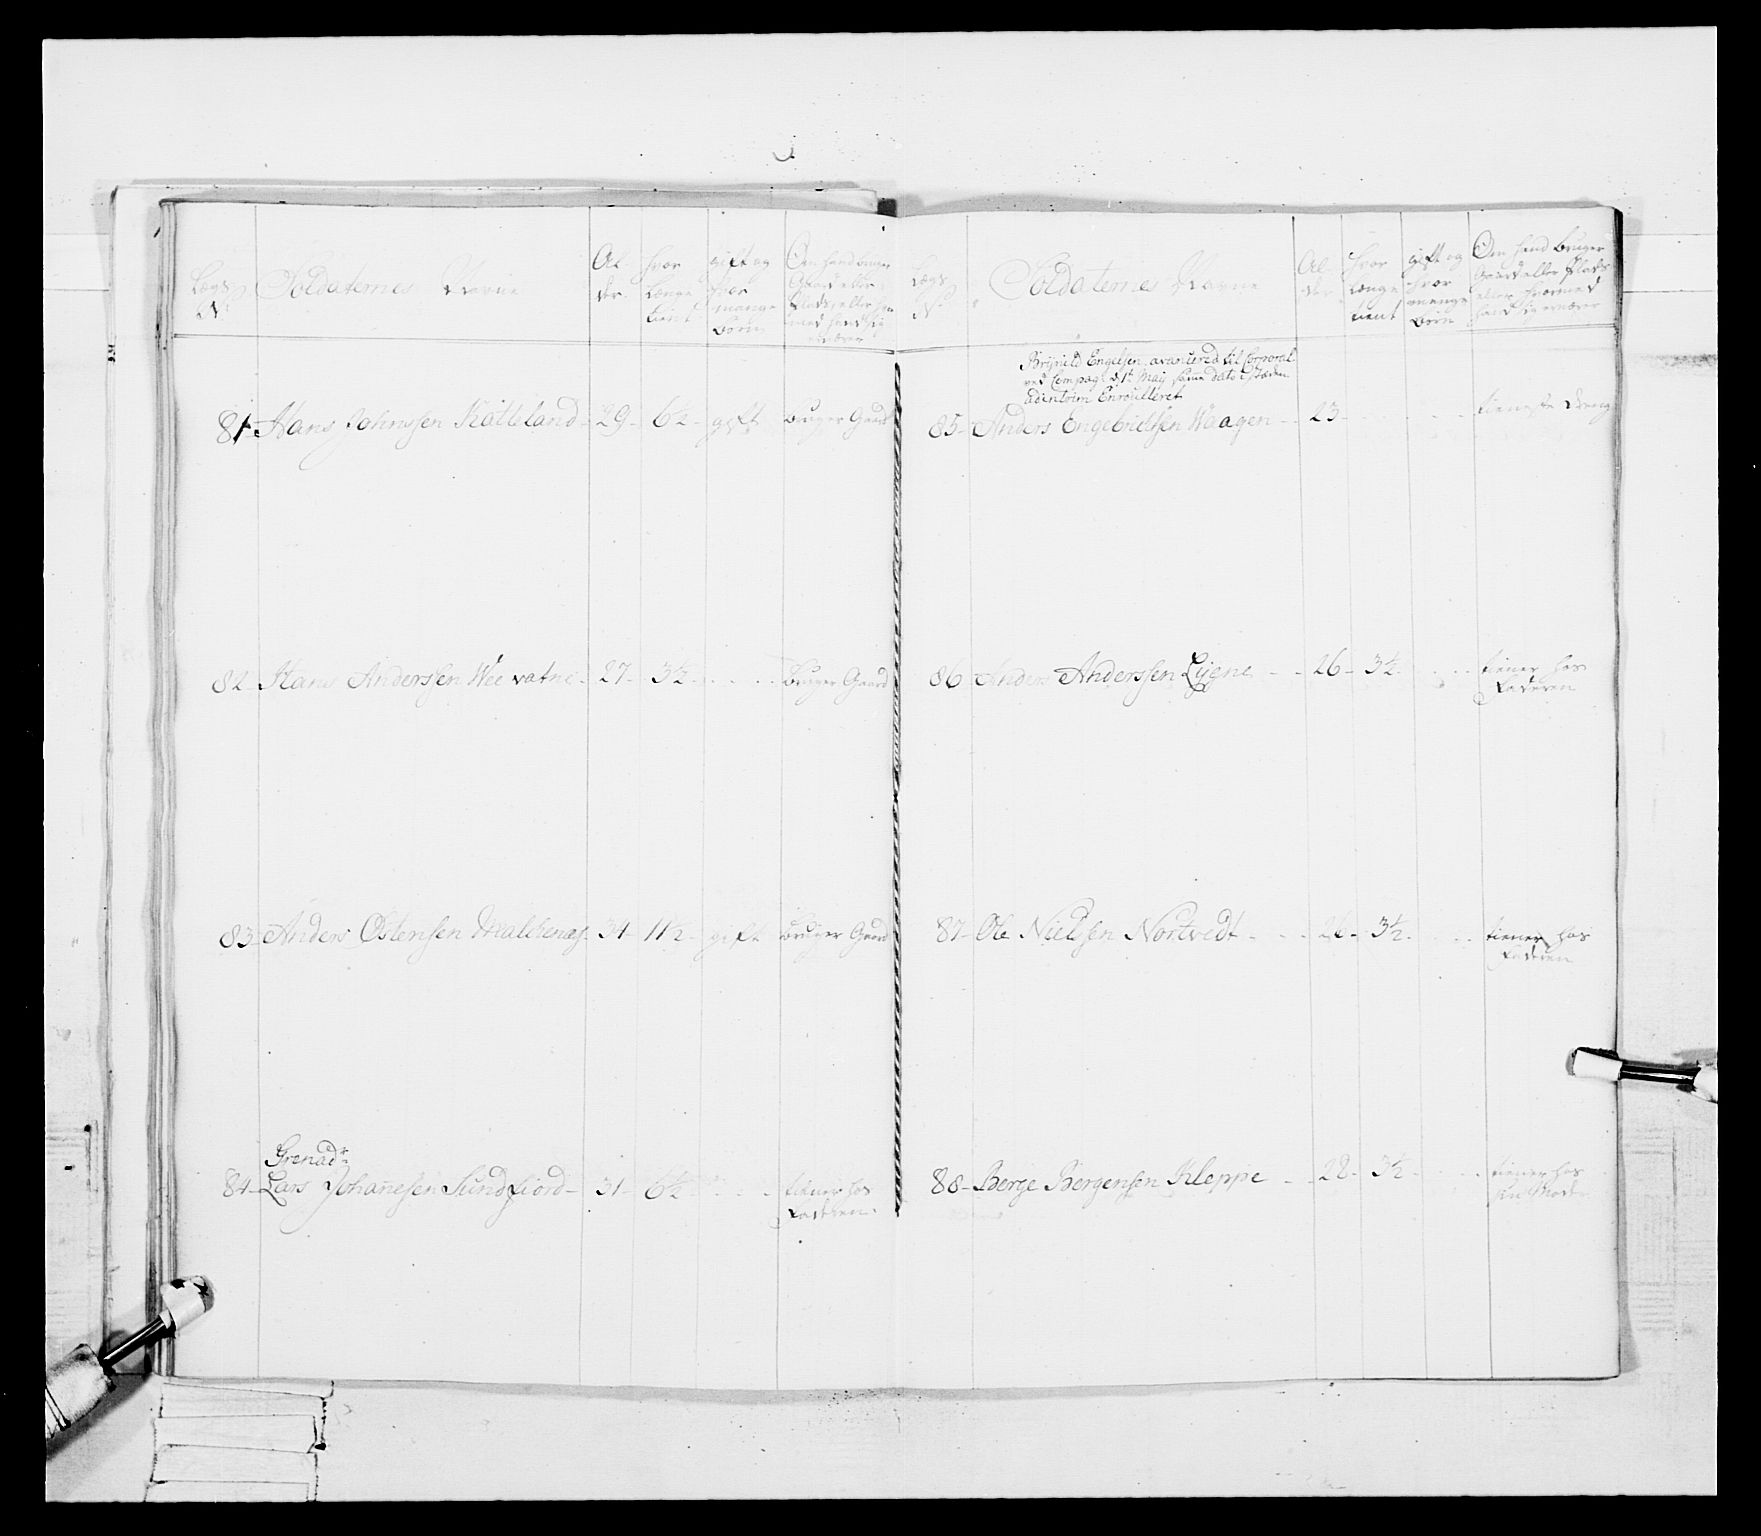 Lægs No
Soldaternes Navne
Al
der
hvor
længe
tient
gift og
hvor
mange
børn
Om hand bruger
Gaard eller
Plads, eller hvor
med hand sig
ernærer
81 - Hans Johnssen Kalleland - 29 - 6½ - gift bruger Gaard
82 - Hans Anderssen Wee vatne - 27 - 3½ - . . . bruger Gaard
83 - Anders Østensen - 34 - 11½ - gift bruger Gaard
Grenadr
84 - Lars Johañesen Sundfiord - 31 - 6½ . . . tiener hos
Faderen.
Lægs
No
Soldaternes Navne
Al
der
hvor
længe
tient
gift og
hvor
mange
børn
Om hand bruger
Gaard eller Plads
eller hvormed
hand sig ernærer
Brynild Engelsen avancered til Corporal
ved Compagt d. 1t Maij samme dato i Stæden
adentrim Enroulleret
85 - Anders Engebrictsen Waagen - - 23 - . . . tieneste dreng
86 - Anders Anderssen Lygne - - 26 - 3½ . . . tiener hos
Faderen
87 - Ole Nielssen Nortvedt - . . 26 - 3½ - . . . tiener hos
Faderen
88 - Berge Bergensen Kleppe - - 28 - 3½ - . . . tiener hos
sin Moder